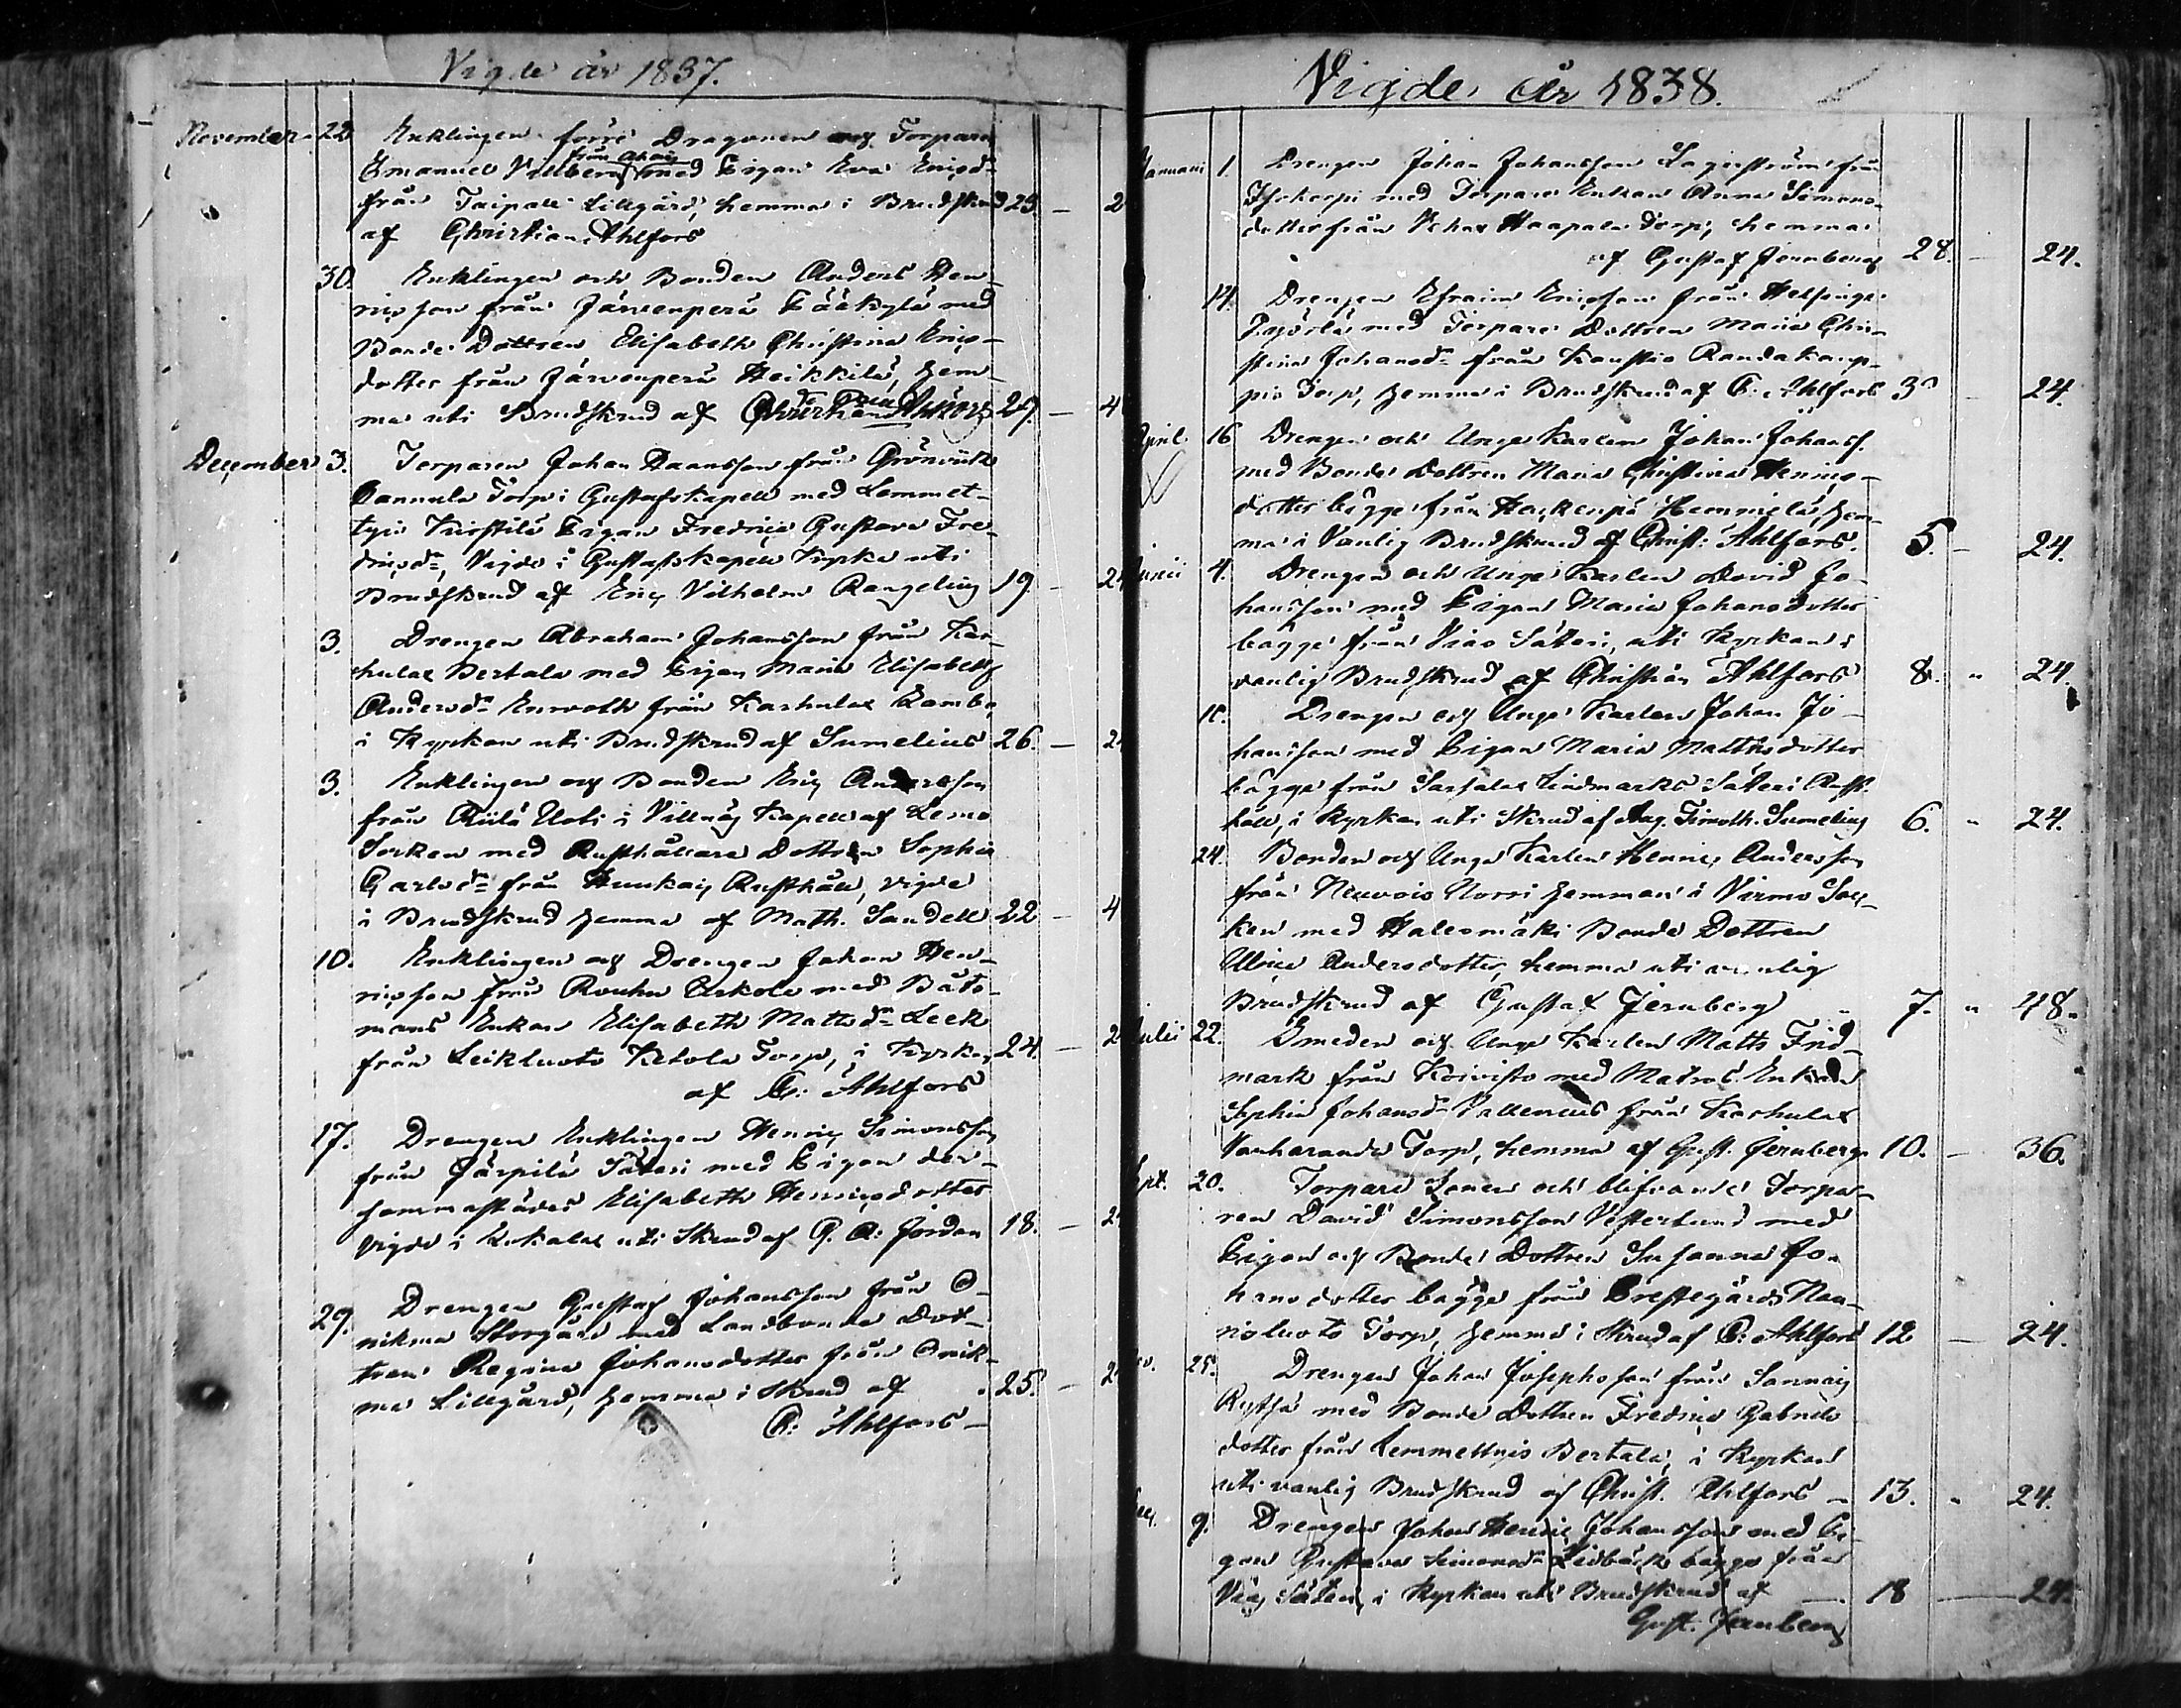 Vigde år 1837.
November 22. Enklingen förre Dragonen och Torparen
från Ahais
Emanuel Villberg med Pigan Eva Ericsd:r
från Taipale Lillgård, hemma i Brudskrud 29. — 2
af Christian Ahlfors
30. Enklingen och Bonden Anders Hen-
ricsson från Järvenperä Pääkylä med
Bonde Dottren Elisabeth Christina Erics-
dotter från Järvenperä Heikkilä, hem-
ma uti Brudskrud af Christian Ahlfors 27. — 4
December 3. Torparen Johan Daansson från Grönvik
Pannula Torp i Gustafs Kapell med Lemmet-
tyis Kirstilä Pigan Fredrica Gustava Fre-
dricsd:r, Vigde i Gustafs Kapell Kyrka uti
Brudskrud af Eric Vilhelm Rangeling 19. — 24
3. Drengen Abraham Johansson från Kar-
hulas Bertala med Pigan Maria Elisabeth
Andersd:r Enroth från Karhulas Lambo
i Kyrkan uti Brudskrud af Sumelius 26. — 2
3. Enklingen och Bonden Eric Andersson
från Riilä Uoti i Villnäs Kapell af Lemo
Socken med Rusthållare Dottren Sophia
Carlsd:r från Hunkais Rusthåll, vigde
i Brudskrud hemma af Math. Sandell 22 — 4
10. Enklingen och Drengen Johan Hen-
ricsson från Rouhu Erkola med Båts-
mans Enkan Elisabeth Mattsd:r Leek
från Leikluoto Ketola Torp, i Kyrkan 24. — 2
af C: Ahlfors
17. Drengen Enklingen Henric Simonsson
från Järpilä Säteri med Pigan der-
sammastädes Elisabeth Henricsdotter
vigde i Lukalax uti Skrud af G. A: Jordan 18. — 2
29. Drengen Gustaf Johansson från O-
nikma Storgård med Landbonde Dot-
tren Regina Johansdotter från Onik-
ma Lillgård, hemma i Skrud af 25. — 2
C: Ahlfors —
Vigde År 1838.
Januari 1. Drengen Johan Johansson Lagerström från
med Torpare Enkan Anna Simons-
dotter från Vehax Haapala Torp, hemma
af Gustaf Jernberg 28. — 24.
14. Drengen Efraim Ericsson från Helsinge
med Torpare Dottren Maria Chri-
stina Johansd:r från Kaustio Randakamp-
pis Torp, hemma i Brudskrud af C. Ahlfors 3 — 24.
April 16 Drengen och Unge Karlen Johan Johanss.
med Bonde Dottren Maria Christina Henrics-
dotter bägge från Kackenpä Hemmilä, hem-
ma i Vanlig Brudskrud af Christ: Ahlfors. 5. — 24.
Junii 4. Drengen och Unge Karlen David Jo-
hansson med Pigan Maria Johansdotter
bägge från Vias Säteri, uti Kyrkan i
vanlig Brudskrud af Christian Ahlfors 8. " 24.
10. Drengen och Unge Karlen Johan Jo-
hansson med Pigan Maria Mattsdotter
bägge från Sarsalax Lindmarks Säteri Rust-
håll, i Kyrkan uti Skrud af Aug. Timoth. Sumelius 6. " 24.
24. Bonden och Unge Karlen Henric Andersson
från Neuvois Norri hemman i Virmo Soc-
ken med Haleomäki Bonde Dottren
Ulrica Andersdotter, hemma uti vanlig
Brudskrud af Gustaf Jernberg 7. " 48.
Julii 22. Smeden och Unge Karlen Matts Frid-
mark från Koivisto med Matros Enkan
Sophia Johansd:r Vallenius från Karhulax
Vanharanda Torp, hemma af Gust. Jernberg 10. — 36.
Sept. 20. Torpare Sonen och blifvande Torpa-
ren David Simonsson Vesterlund med
Pigan och Bonde Dottren Susanna Jo-
hansdotter bägge från Prestegårds Nau-
risluoto Torp, hemma i Skrud af C: Ahlfors 12 — 24.
ov. 25. Drengen Johan Josephsson från Sannais
Rytsä med Bonde Dottren Fredrica Gabriels-
dotter från Lemmettyis Bertala, i Kyrkan
uti vanlig Brudskrud af Christ. Ahlfors — 13. " 24.
Dec. 9. Drengen Johan Henric Johansson med Pi-
gan Gustava Simonsd:r Lidbäck bägge från
Vias Säteri i Kyrkan uti Brudskrud af — 18 — 24.
Gust. Jernberg